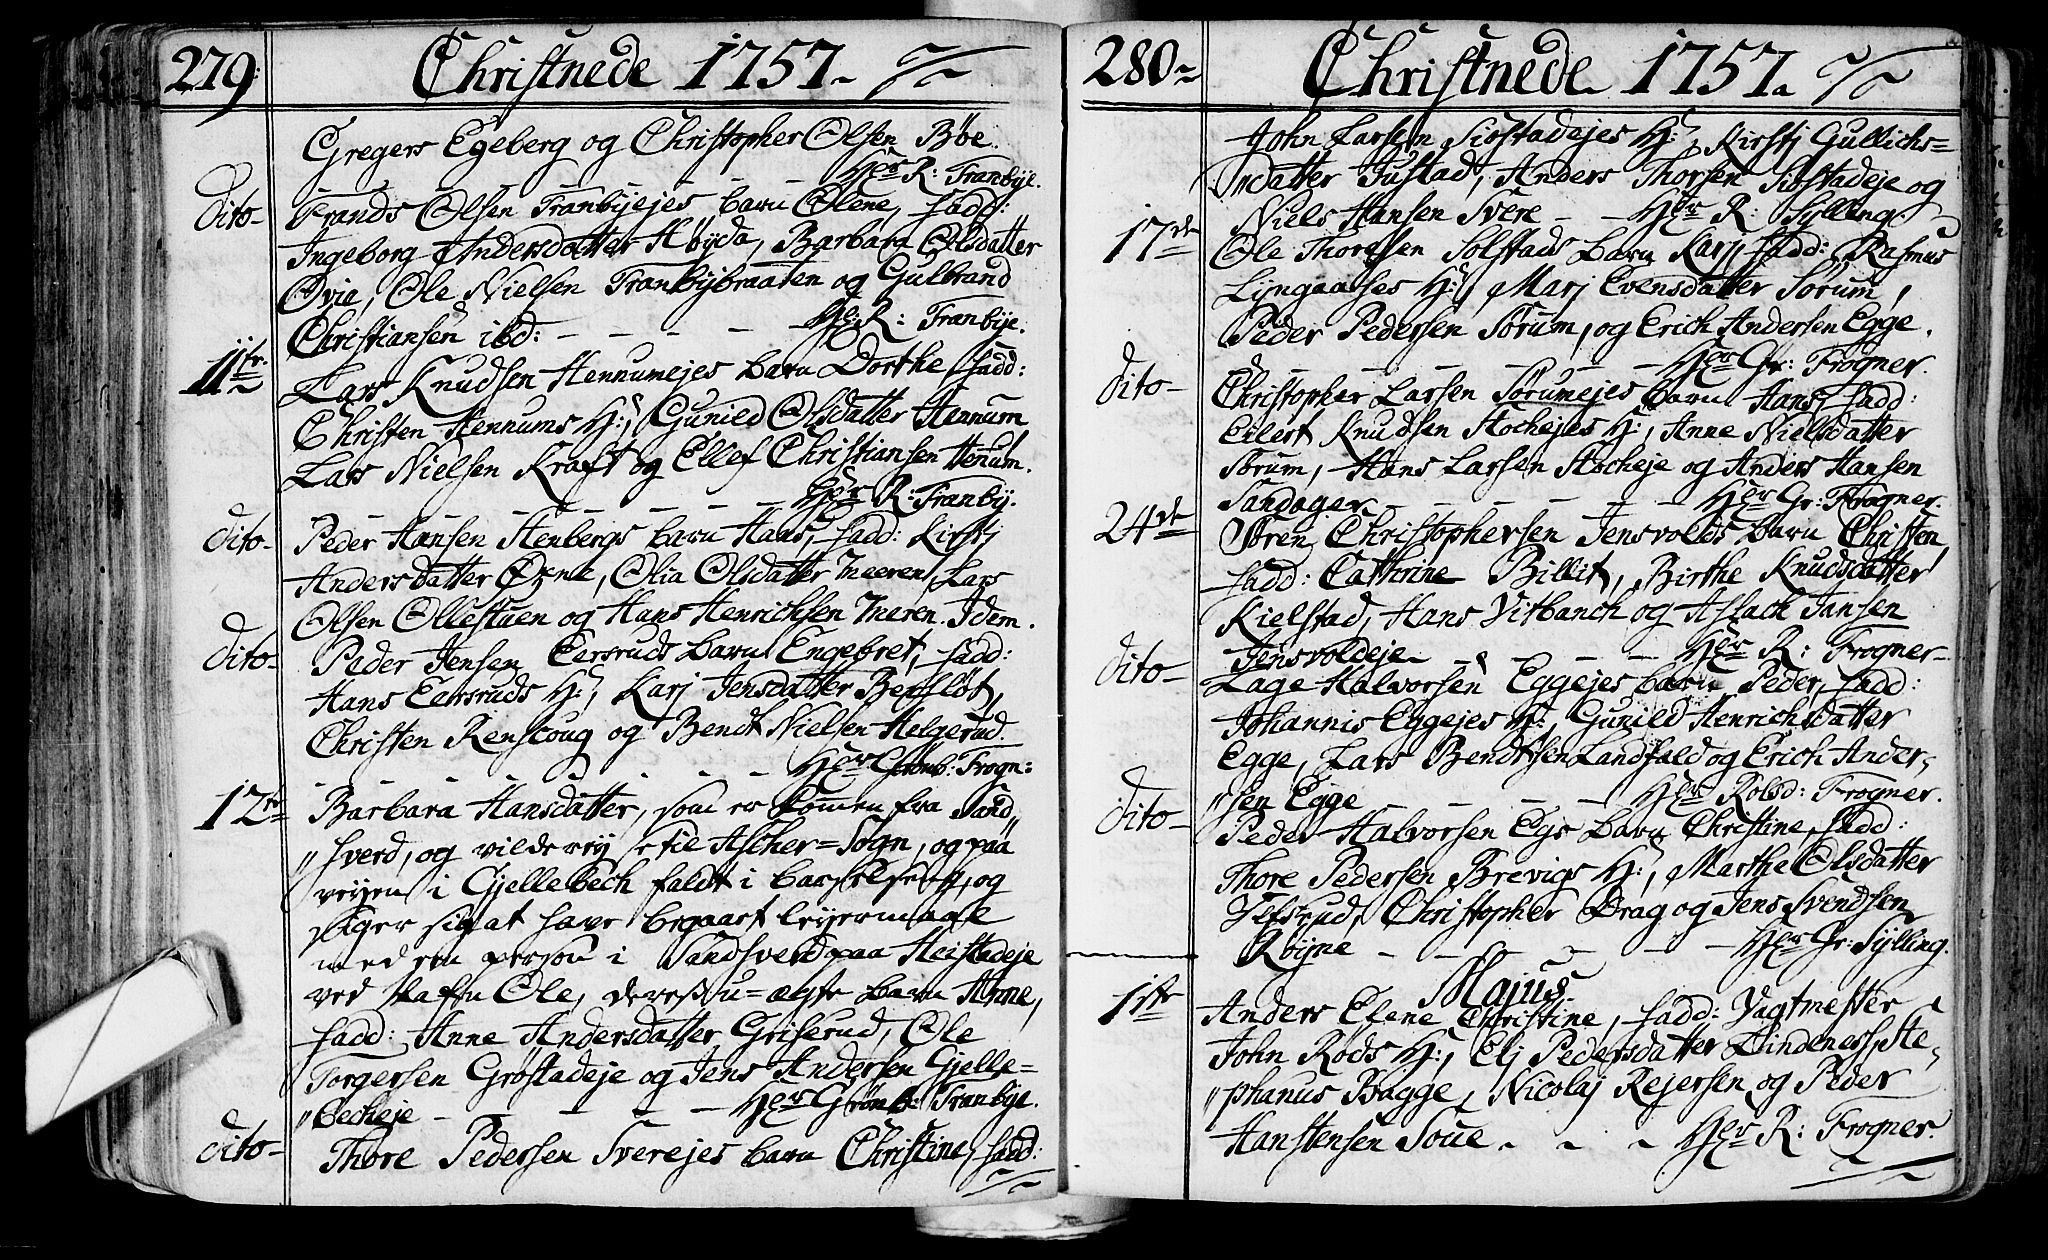 279. Christnede 1757.
Gregers Egeberg og Christopher Olsen Böe.
Her R: Tranbÿe.
Dito- Trands Olsen Tranbÿejes barn Olene, fadd:
Ingeborg Andersdatter Höÿda, Barbara Olsdatter
Ovie, Ole Nielsen Tranbÿbraaten og Gulbrand
Christiansen ibd: - - - - He: R: Tranbÿe.
11te Lars Knudsen Hennumejes barn Dorthe, fadd:
Christen Hennums H:, Gunied Olsdatter Hennum
Lars Nielsen Kraft og Ellef Christiansen Henum.
- - - - - - Her R: Tranbÿ.
Dito- Peder Hansen Stenbergs barn Hans, fadd: Kirstj
Andersdatter, Olia Olsdatter Meeren, Lars
Olsen Ollestuen og Hans Henrichsen Meren. Idem.
Dito- Peder Jensen Eersruds barn Engebret, fadd:
Hans Eersruds H:, Karj Jensdatter
Christen Renscoug og Bendt Nielsen Helgerud.
- - - - - - Her Grönb: Frogn:
12te Barbara Hansdatter, som er komen fra Sand„
„sverd, og vilde reÿse til Ascher=Sogn, og paa
veÿen i Gjellebech faldt i barselseng, og
siger sig at have begaaet leÿermaal
med en person i Sandsverd paa Heistadeje
ved Nafn Ole, deres u=ægte barn Anne,
fadd: Anne Andersdatter Griserud, Ole
Torgersen Gröstadeje og Jens Andersen Gjelle=
„becheje - - - - Her Grönb: Tranbÿe.
Dito- Thore Pedersen Sverejes barn Christine, fadd:
280 Christnede 1757.
John Larsen Siöstadejes H:, Kirstj Gullichs=
datter Justad, Anders Thorsen Siöstadeje og
Niels Hansen Svere - - Her R: Sylling.
17de Ole Thoresen Solstads barn Karj fadd: Rasmus
Lyngaasses H:, Marj Evensdatter Sörum,
Peder Pedersen Sörum, og Erich Andersen Egge.
- - - - - - Her Gr: Frogner.
Dito- Christopher Larsen Sörumejes barn Hans, fadd:
Eilert Knudsen Stochejes H:, Anne Nielsdatter
Sörum, Hans Larsen Stocheje og Anders Hansen
Sandager - - - - Her Gr: Frogner.
24de Sören Christophersen Jensvolds barn Christen
fadd: Cathrine Billit, Birthe Knudsdatter
Kielstad, Hans Vitbanch og Aslach Jansen
Jensvoldeje - - - - Her R: Frogner-
Dito- Lage Halvorsen Eggejes barn Peder, fadd:
Johannis Eggejes H:, Gunild Henrichsdatter
Egge, Lars Bendtsen Landfald og Erich Ander„
„sen Egge - - - - Her Rolsd: Frogner.
Dito- Peder Halvorsen Egs barn Christine, fadd:
Thore Pedersen Brevigs H:, Marthe Olsdatter
Ulfsrud, Christopher Drag og Jens Svendsen
Röÿne - - - - - Her Gr: Sÿlling.
Majus.
1ste Anders Elene Christine, fadd: Vagtmester
John Röds H:, Elj Pedersdatter Dindeness, Ste„
„phanus Bagge, Nicolaj Rejersen og Peder
Hanstensen Soue - - - Her R: Frogner.